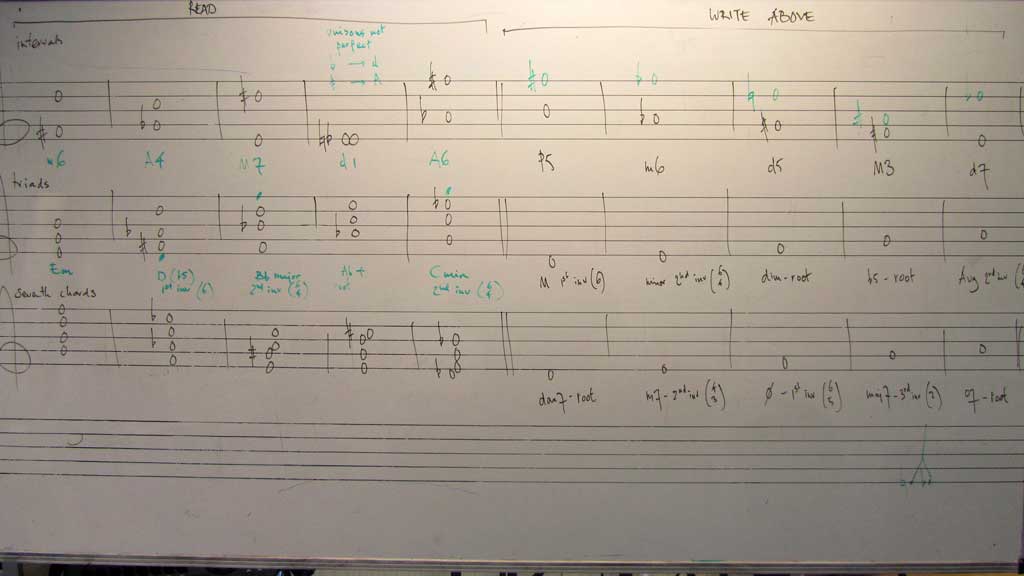 READ
WRITE ABOVE
intervals
unisons not
perfect
→ d
→ A
m6 A4 M7 d1 A6 P5 m6 d5 M3 d7
triads
Em D(b5) Bb major Ab+ C min M 1st inv (6) minor 2nd inv (6/4) dim-root b5-root Aug 2nd inv (6/4)
1st inv (6) 2nd inv (6/4) 2nd inv (6/4)
seventh chords
dom7-root m7-2nd inv (4/3) ø-1st inv (6/5) maj7-3rd inv (2) o7-root